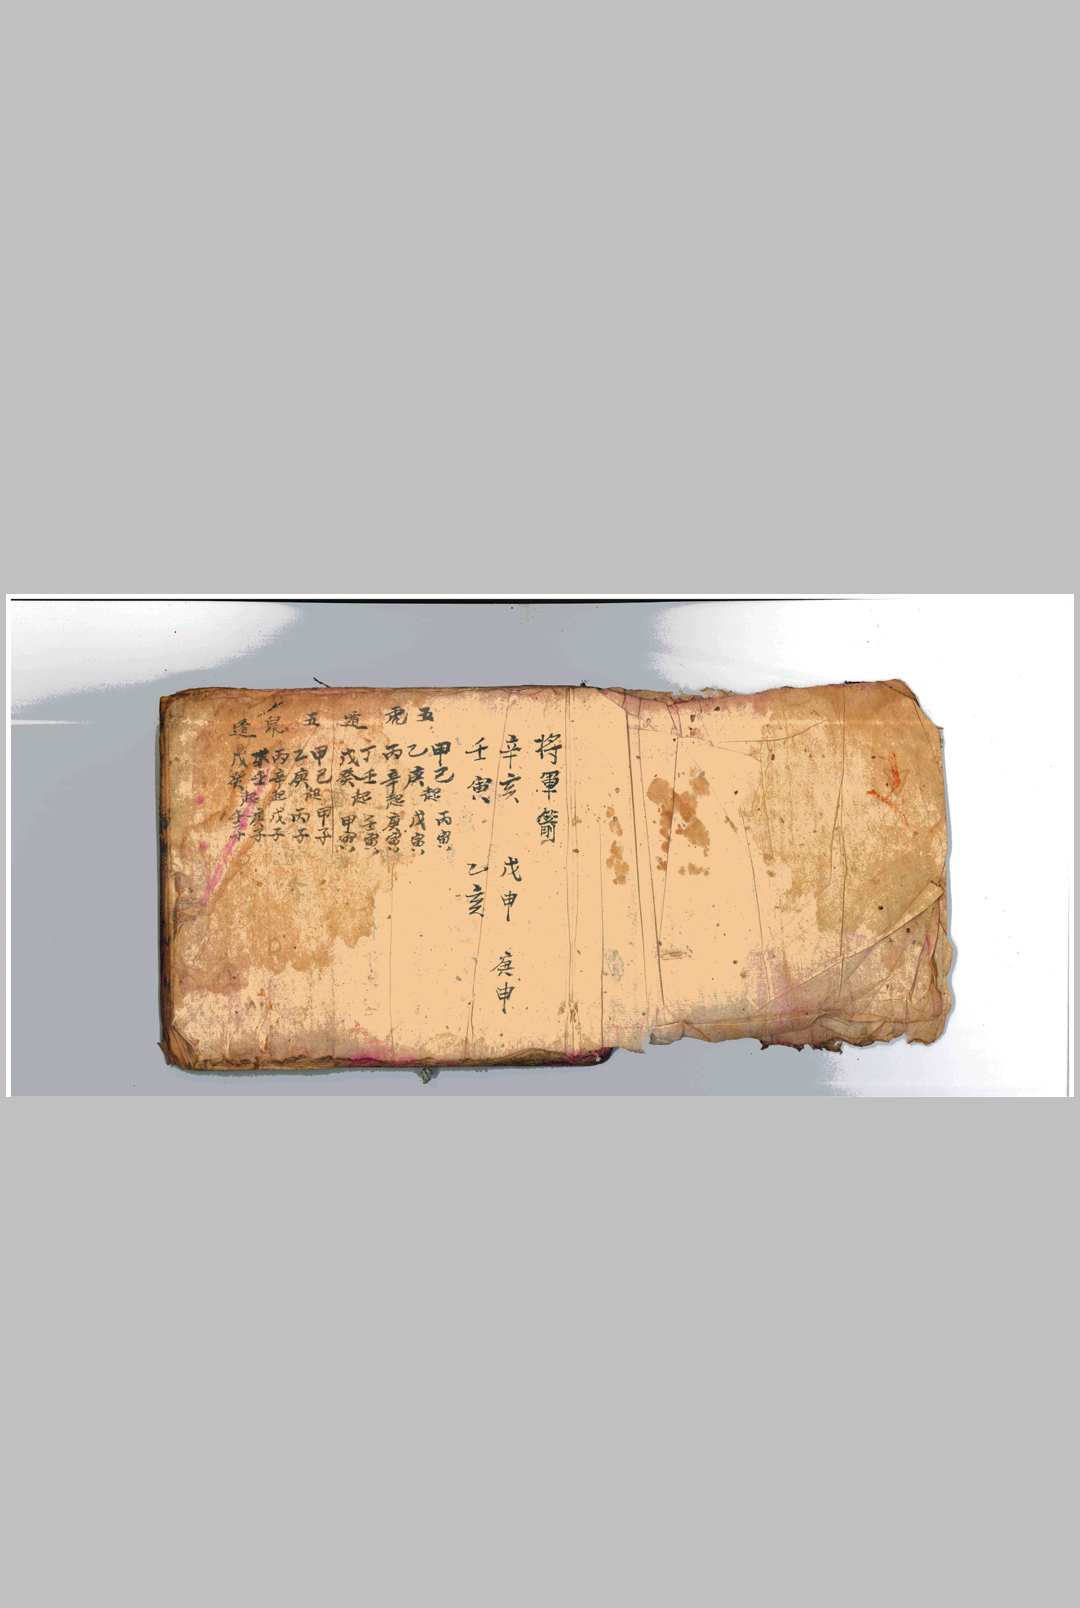 将軍箭
辛亥 戊申 庚申
壬寅 乙亥
五虎遁
甲己起丙寅
乙庚起戊寅
丙辛起庚寅
丁壬起壬寅
戊癸起甲寅
五鼠遁
甲己起甲子
乙庚起丙子
丙辛起戊子
壬起庚子
戊癸起壬子